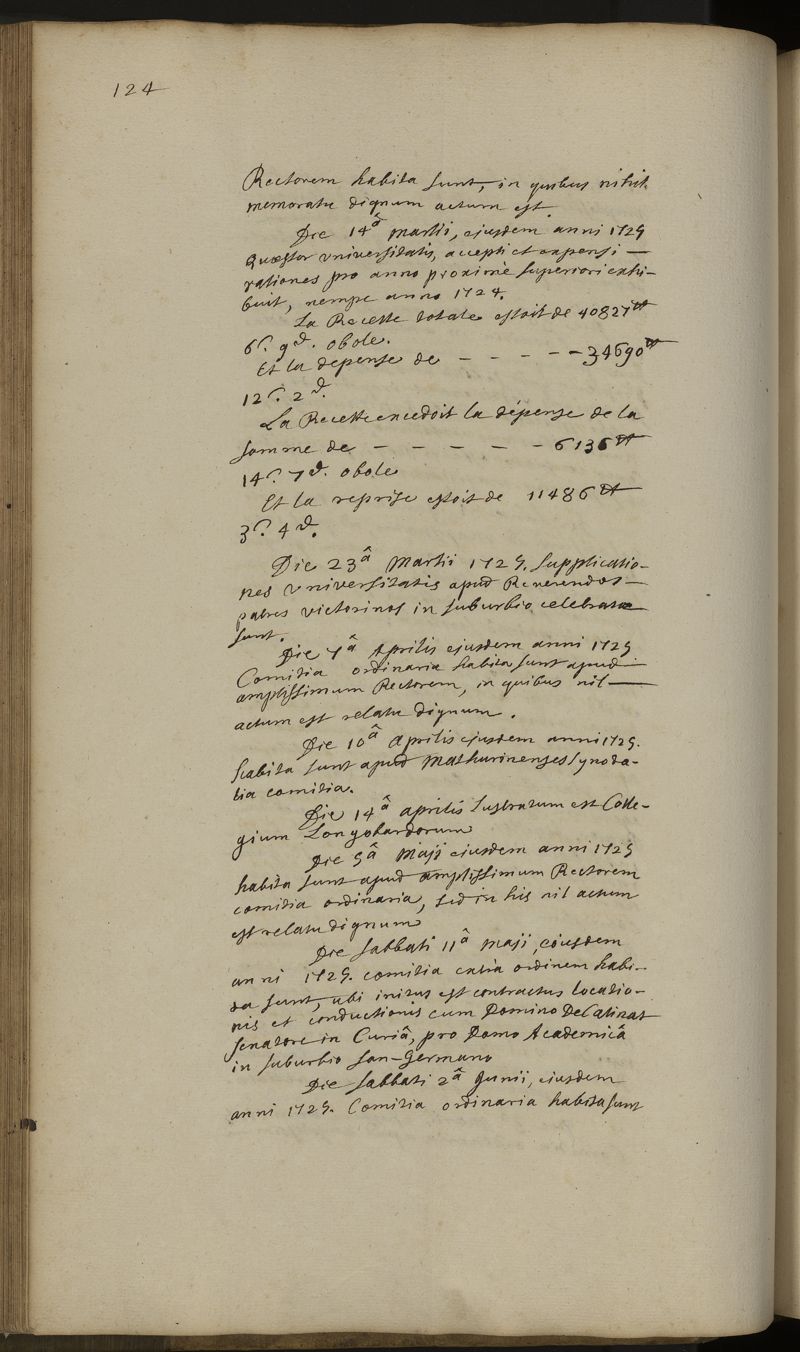 124
Rectorem habita sunt, in quibus nihil
memoratu dignum actum est.
Die 14â martii, ejusdem anni 1725
quæstor universitatis, accepti et expensi —
rationes pro anno proximè superiori exhi-
buit, nempe anno 1724.
La Recette totale estoit de 40827 ₶
6 s. 9 d. obole.
Et la depense de - - - - - 34690 ₶
12 s. 2 d.
La Recette excedoit la dépense de la
somme de - - - - - 6136 ₶
14 s. 7 d. obole
Et la reprise estoit de 11486 ₶
3 s. 4 d.
Die 23â Martii 1725. supplicatio-
nes universitatis apud Reverendos —
patres victorinos in suburbio celebratæ
sunt.
Die 7â Aprilis ejusdem anni 1725
Comitia ordinaria habita sunt apud
amplissimum Rectorem, in quibus nil —
actum est relatu dignum.
Die 10â Aprilis ejusdem anni 1725.
habita sunt apud Mathurinenses synoda-
lia comitia.
Die 14â aprilis lustratum est Colle-
gium Longobardorum
Die 5â Maji ejusdem anni 1725
habita sunt apud amplissimum Rectorem
comitia ordinaria, sed in his nil actum
est relatu dignum
Die sabbati 11â maji, ejusdem
anni 1725. comitia extra ordinem habi-
ta sunt, ubi initus est contractus locatio-
nis et conductionis cum Domino De Catinat
senatore in Curiâ, pro Domo Academicâ
in suburbio san-Germano
Die sabbati 2â Junii, ejusdem
anni 1725. Comitia ordinaria habita sunt